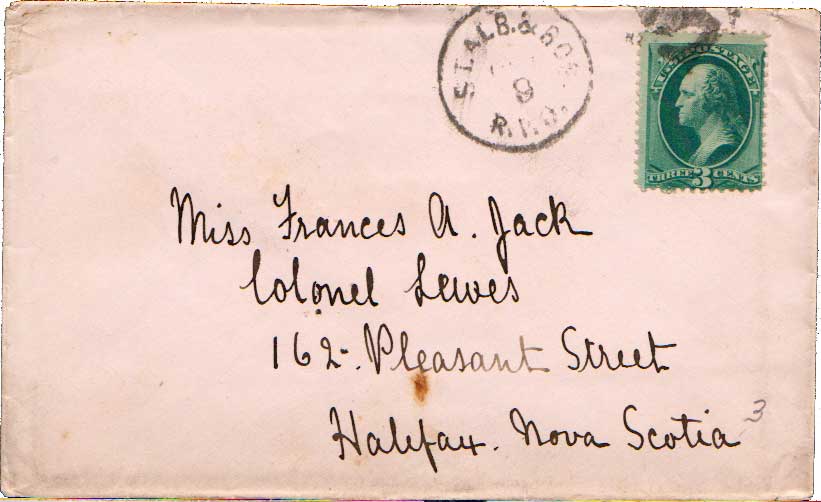 ST. ALB. & BOS.
9
R.P.O.
U.S. POSTAGE
THREE 3 CENTS
Miss Frances A. Jack
Colonel Lewes
162. Pleasant Street
Halifax. Nova Scotia
3